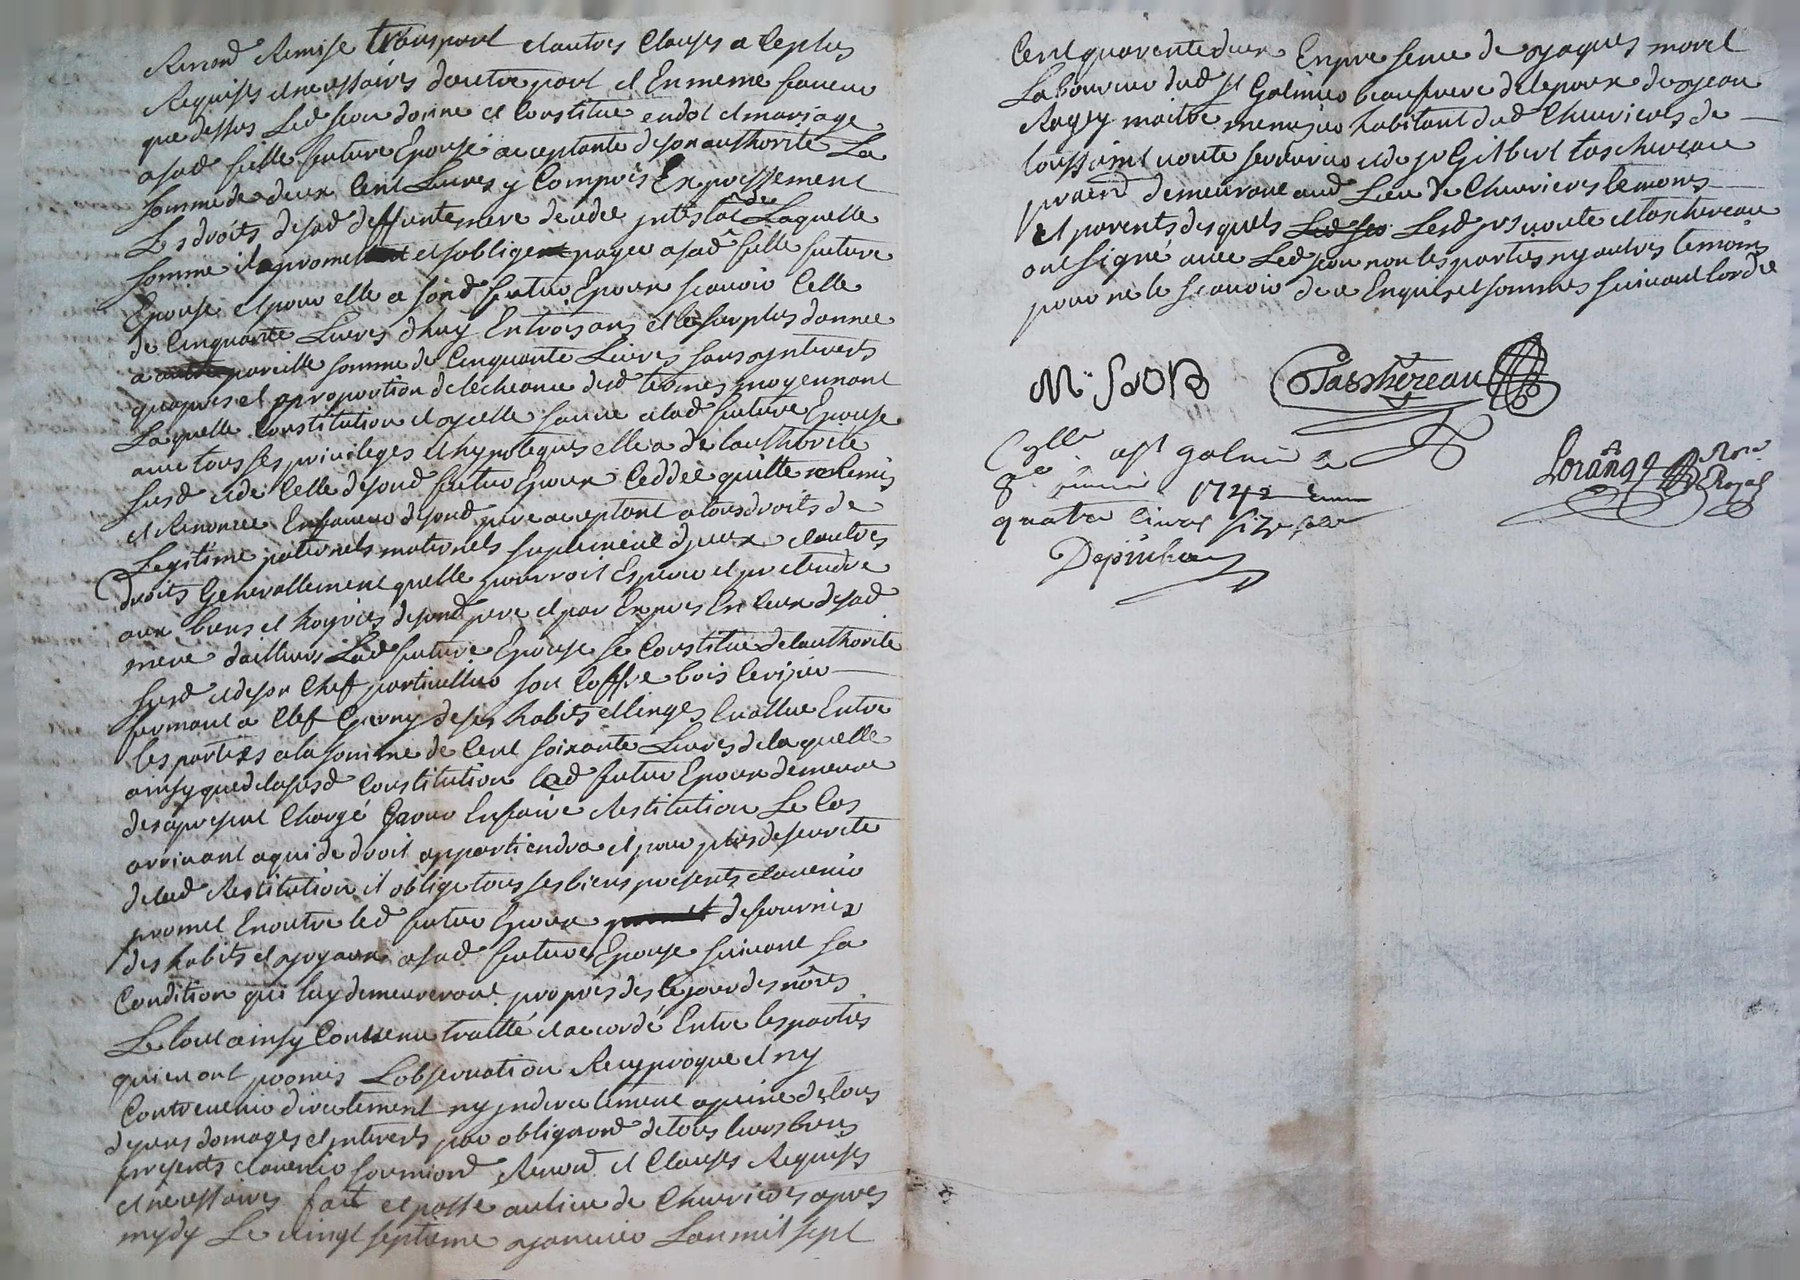 Renond Remise transport et autres Clauses a ce plus
Requises et necessaires d'autre part et En meme faveur
que dessus Led Seon donne et Constitue en dot et mariage
a sad fille future Epouse acceptante de son authorité La
somme de deux Cent Livres y Compris Expressement
Les droits de sad deffunte mere decedée intestat de Laquelle
somme il promet et soblige payer a sad fille future
Epouse et pour elle a sond futur Epoux scavoir Celle
de Cinquante Livres d'huy En trois ans et le surplus dannée
a pareille somme de Cinquante Livres sans interets
qu'apres et a proportion de lecheance desd termes moyennant
Laquelle Constitution et icelle sauve a lad future Epouse
avec tous ses privileges et hypoteques elle a de lauthorité
susd et de Celle de sond futur Epoux Ceddé quitte Remis
et Renoncé En faveur de sond pere acceptant a tous droits de
Legitime paternels maternels suplement d'iceux et autres
droits Generallement quelle pourroit Esperer et pretendre
aux biens et hoyries de sond pere et par Expres En Ceux de sad
mere d'ailleurs Lad future Epouse se Constitue de lauthorité
susd et de son Chef particullier son Coffre bois Cerizier
fermant a Clef Garny de ses habits et linges Evallué Entre
les parties a la somme de Cent soixante Livres de laquelle
ainsy que de la susd Constitution led futur Epoux demeure
des a present Chargé pour En faire Restitution Le Cas
arrivant a qui de droit appartiendra et pour plus de seureté
de lad Restitution il oblige tous ses biens presents et avenir
promet En outre led futur Epoux de fournir
des habits et joyaux a sad future Epouse suivant sa
Condition qui luy demeureront propres des le jour des nôces
Le tout ainsy Convenu traitté et accordé Entre les parties
qui en ont promis Lobservation Reciproque et ny
Contrevenir directement ny indirectement a peine de tous
depens domages et interets par obligaond de tous leurs biens
presents et avenir soumiond Renond et Clauses Requises
et necessaires fait et passé au lieu de Chevrieres apres
mydy Le vingt septieme janvier Lan mil sept
Cent quarente deux En presence de jaques morel
Laboureur dud St Galmier beaufrere de lepoux de jean
Ragey maitre menusier habitant dud Chevrieres de
toussaint et de sr Gilbert taschereau
praend demeurant aud Lieu de Chevrieres temoins
et parents desquels Lesd srs et taschereau
ont signé avec Led Seon non les parties ny autres temoins
pour ne le scavoir de ce Enquis et sommés suivant lordce
M: SEON
Taschereau
Collé a St galmier le
8e 1742
quatre livres seize sols
Loranges Nore Royal